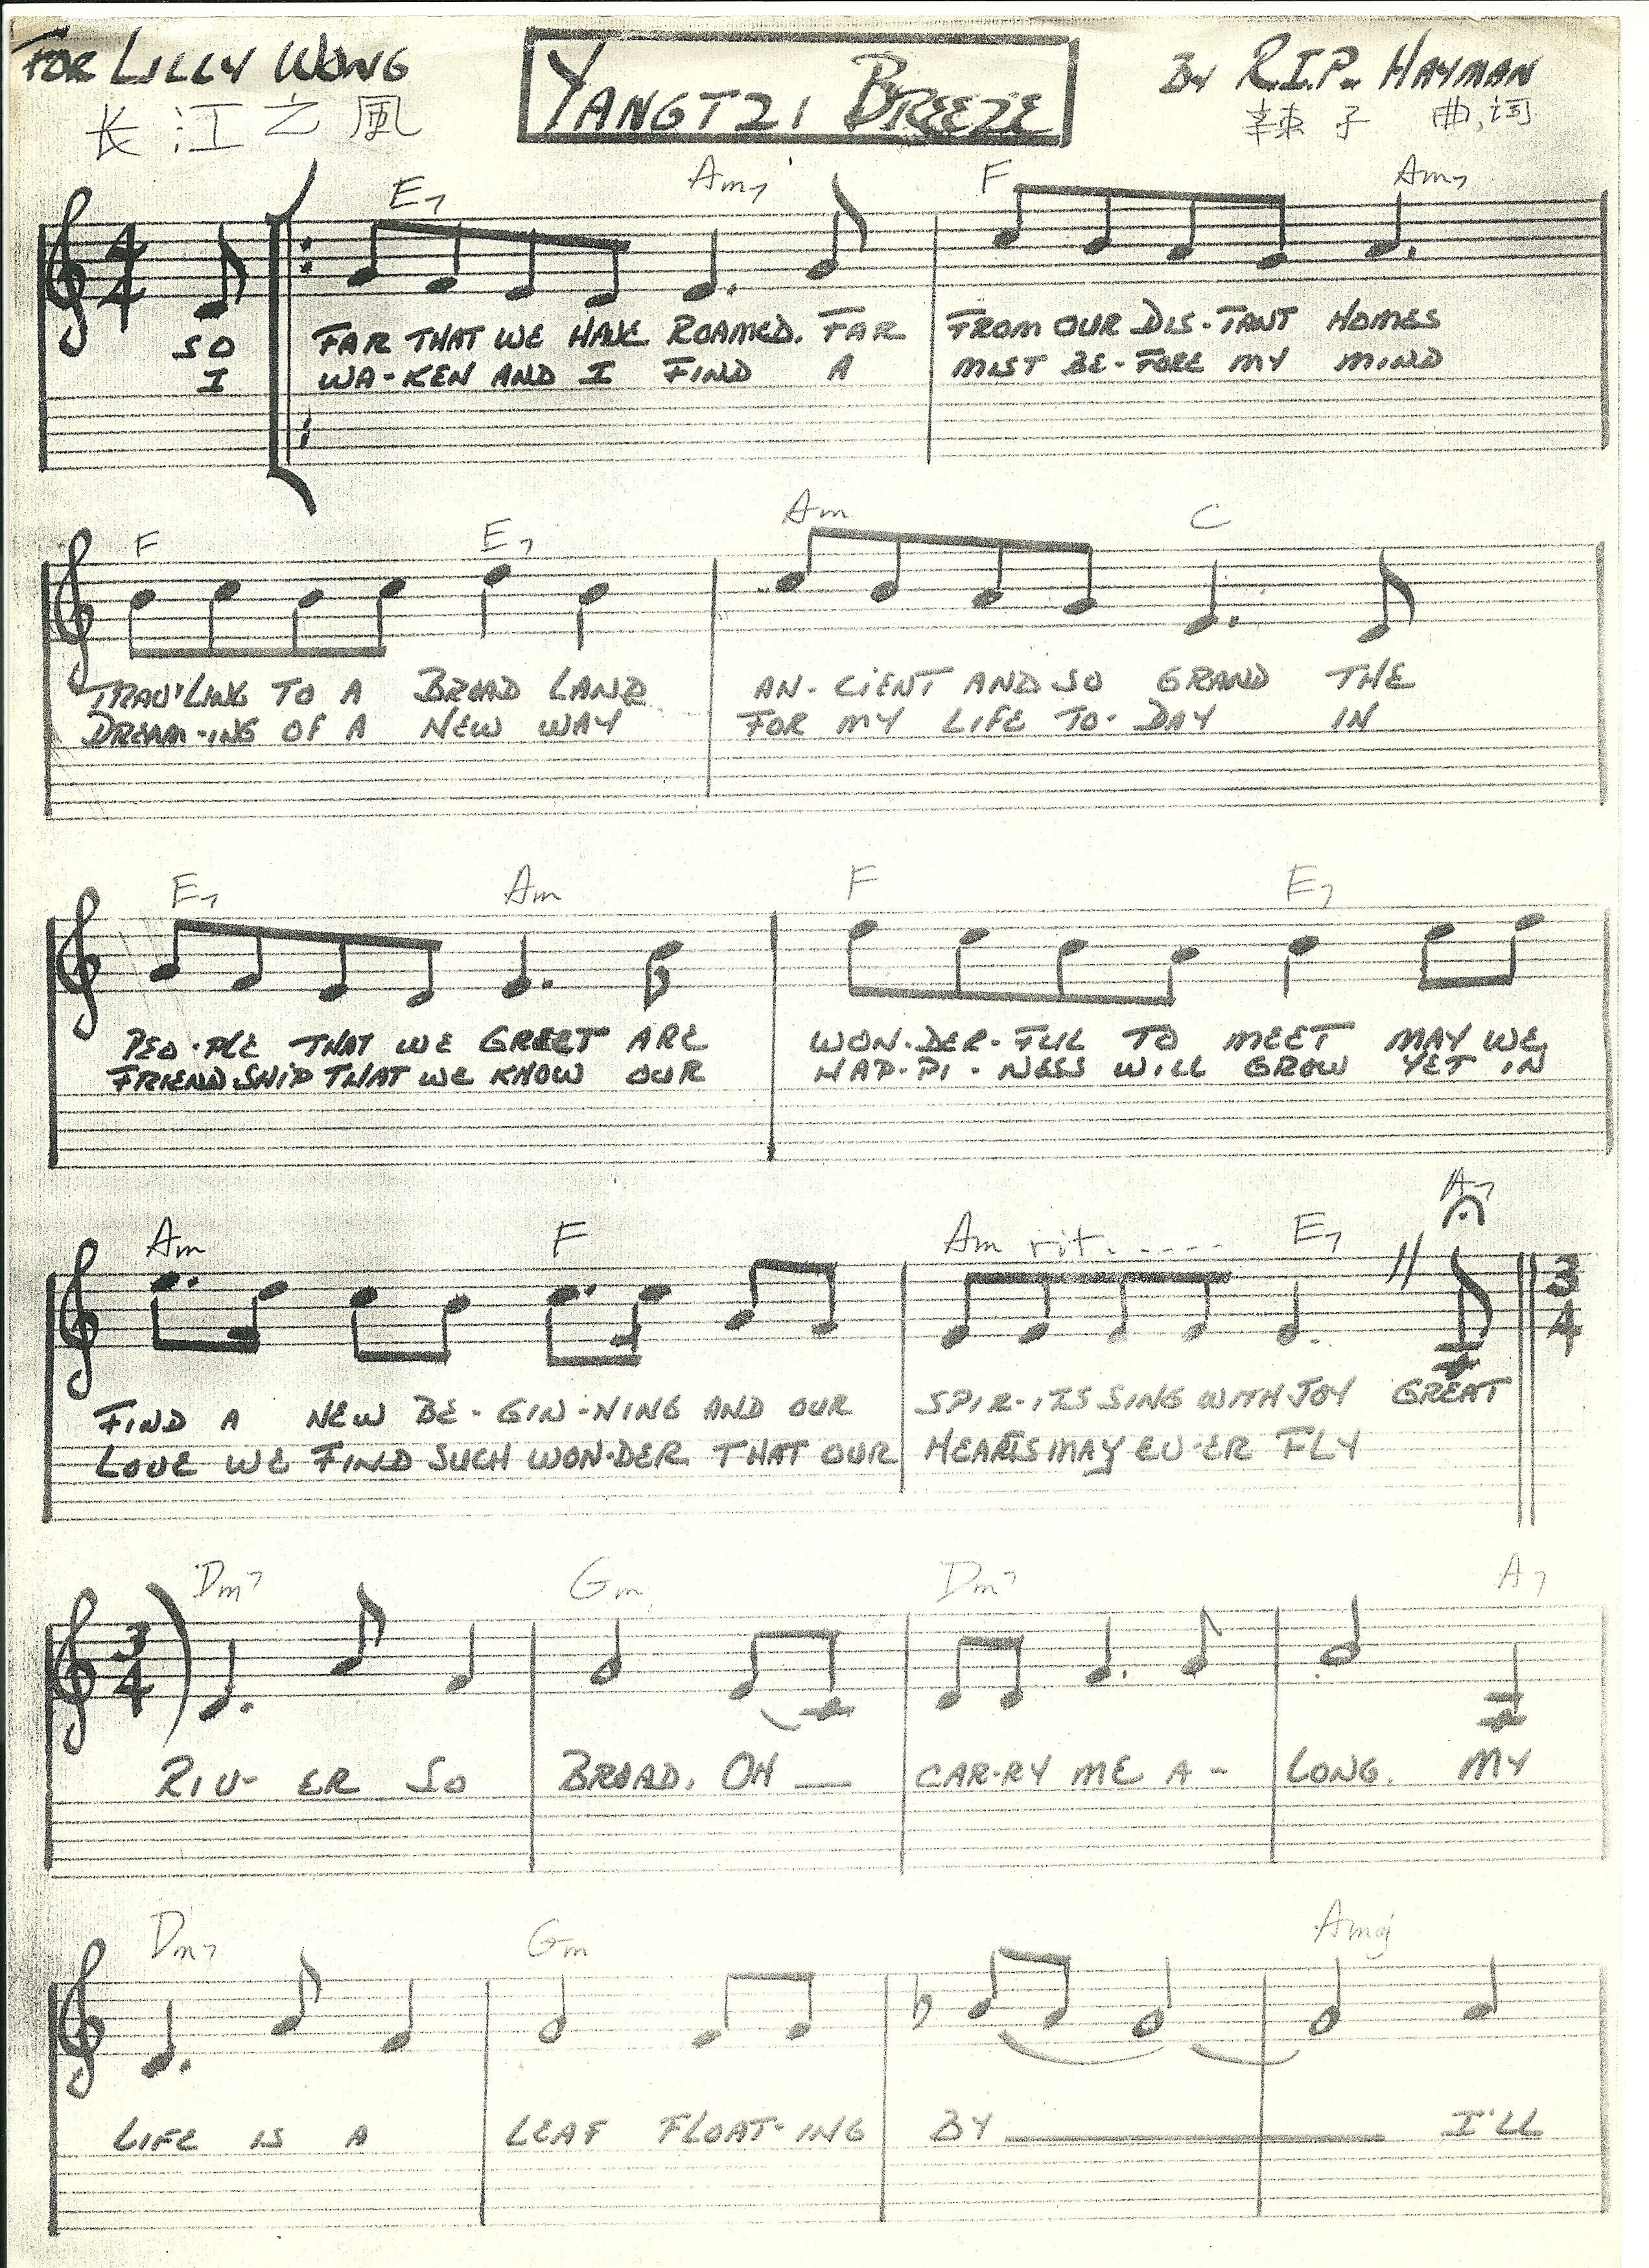 FOR LILLY WONG
YANGTZI BREEZE
BY R.I.P. HAYMAN
长江之風
辣子 曲,词
E7 Am7 F Am7
4/4
SO FAR THAT WE HAVE ROAMED. FAR FROM OUR DIS-TANT HOMES
I WA-KEN AND I FIND A MIST BE-FORE MY MIND
F E7 Am C
TRAV'LING TO A BROAD LAND AN-CIENT AND SO GRAND THE
DREAM-ING OF A NEW WAY FOR MY LIFE TO-DAY IN
E7 Am F E7
PEO-PLE THAT WE GREET ARE WON-DER-FUL TO MEET MAY WE
FRIENDSHIP THAT WE KNOW OUR HAP-PI-NESS WILL GROW YET IN
Am F Am rit. ..... E7 A7
3/4
FIND A NEW BE-GIN-NING AND OUR SPIR-ITS SING WITH JOY GREAT
LOVE WE FIND SUCH WON-DER THAT OUR HEARTS MAY EV-ER FLY
Dm7 Gm Dm7 A7
3/4
RIV-ER SO BROAD. OH __ CAR-RY ME A-LONG. MY
Dm7 Gm Amaj
LIFE IS A LEAF FLOAT-ING BY ______ I'LL